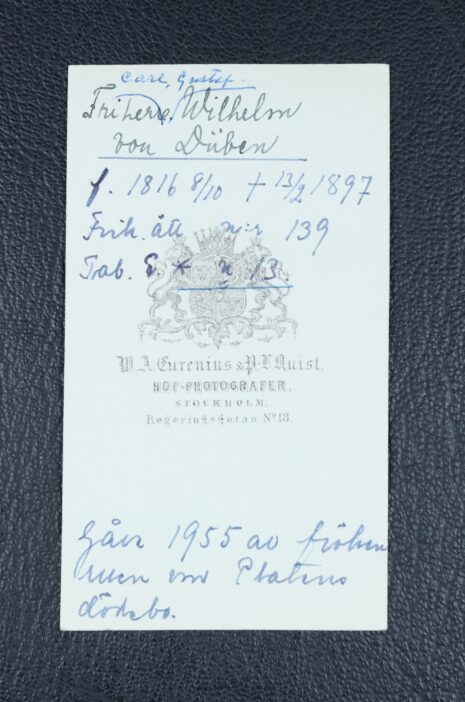 Carl, Gustaf.
Friherre Wilhelm
von Düben
f. 1816 8/10 + 13/2 1897
Frih. ätt n:r 139
Tab. * n 13.
W. A. Eurenius & P. L. Quist.
HOF-PHOTOGRAFER.
STOCKHOLM.
Regeringsgatan No 18.
Gåva 1955 av fröken
von Platens
dödsbo.